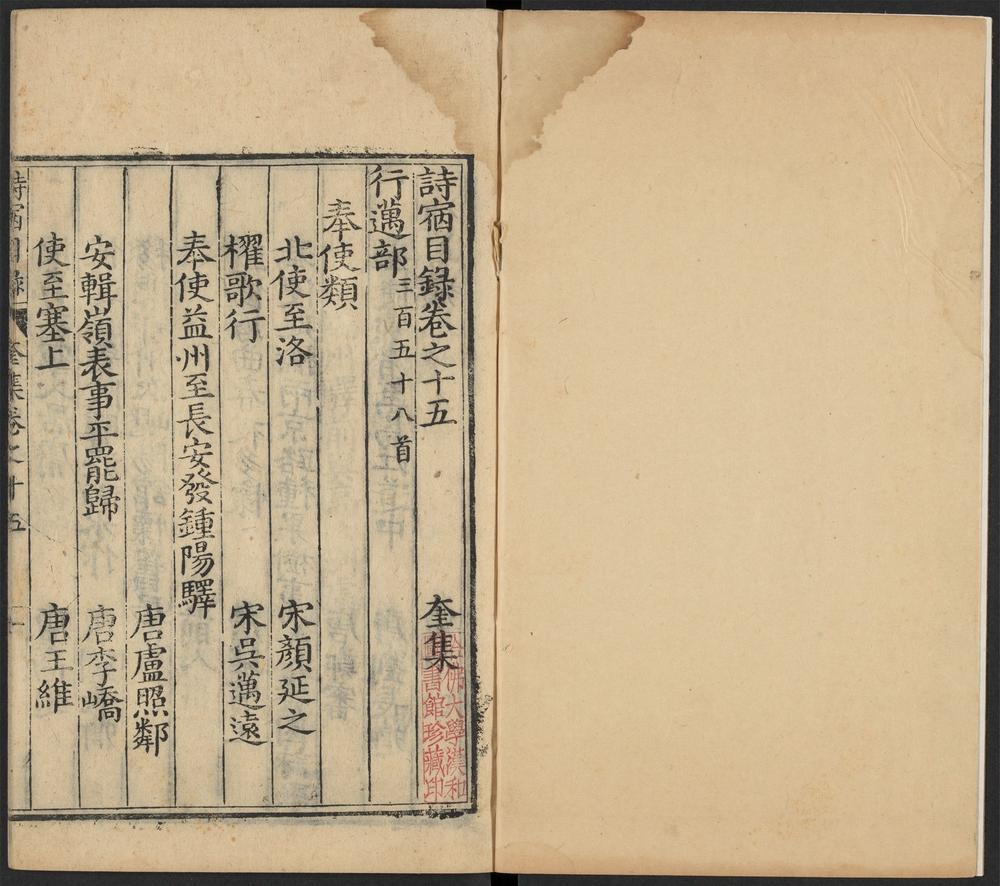 詩宿目録卷之十五 奎集
哈佛大學漢和
圖書館珍藏印
行邁部 三百五十八首
奉使類
北使至洛 宋顏延之
櫂歌行 宋吳邁遠
奉使益州至長安發鍾陽驛
唐盧照鄰
安輯嶺表事平罷歸 唐李嶠
使至塞上 唐王維
詩宿目録 奎集卷之十五 一